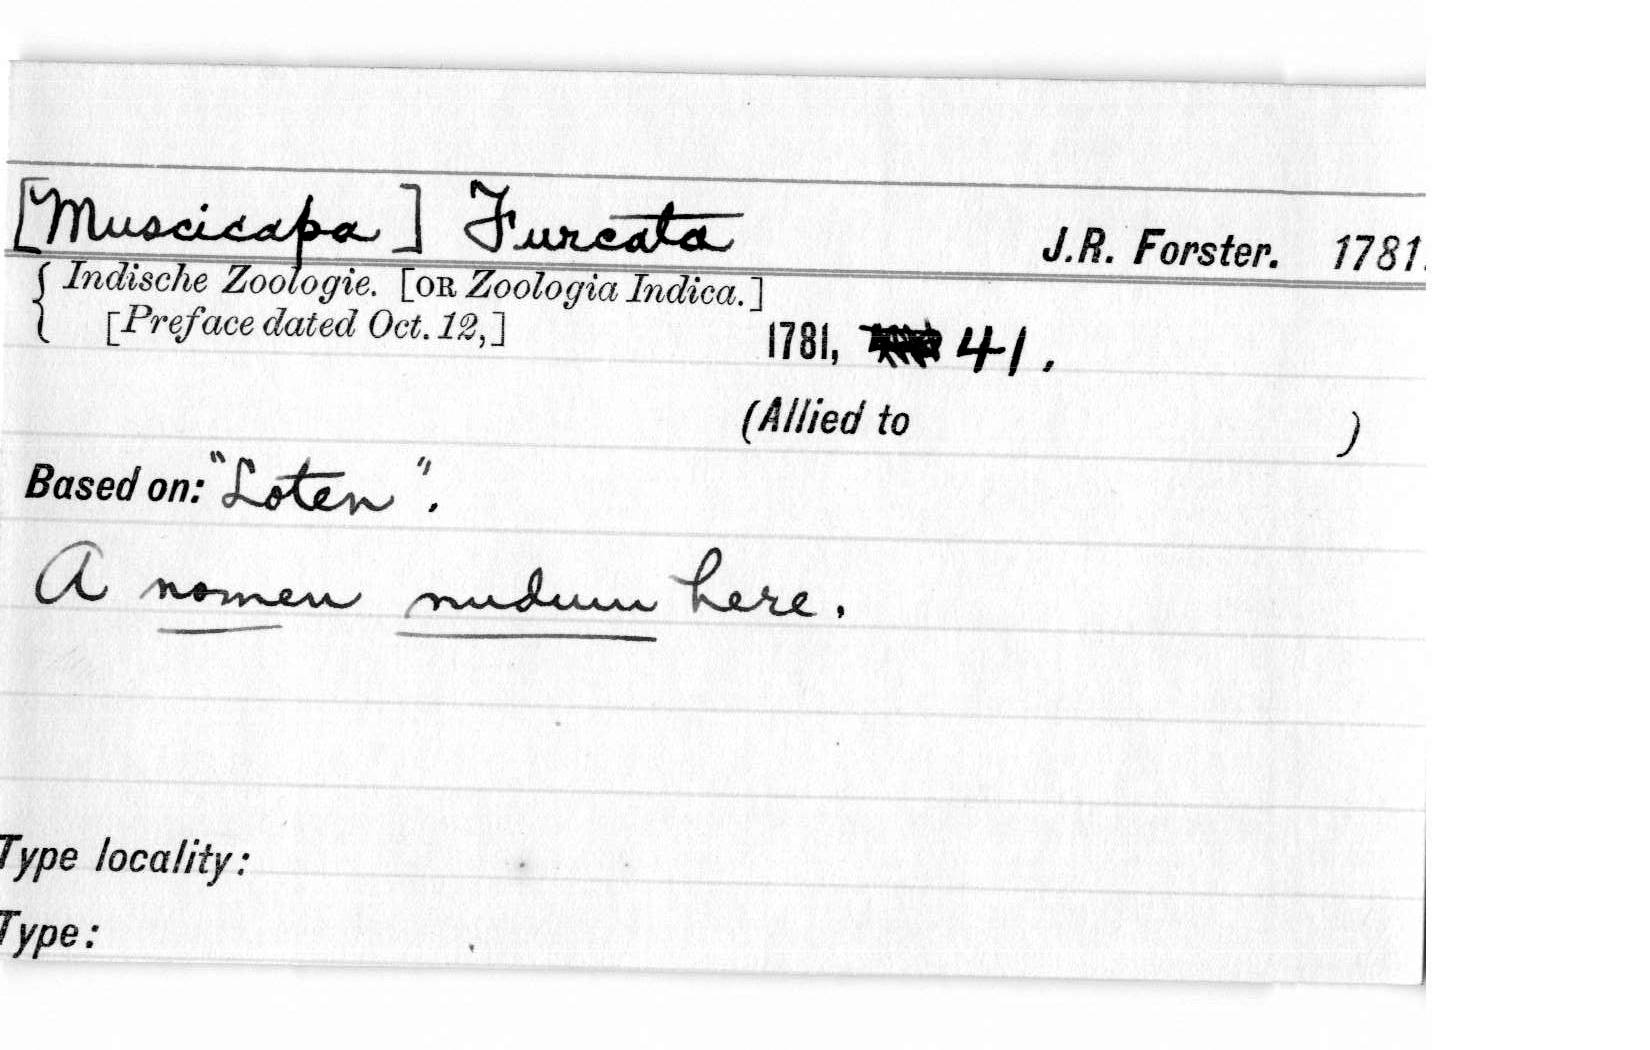 [Muscicapa] Furcata J.R. Forster. 1781.
{ Indische Zoologie. [OR Zoologia Indica.]
[Preface dated Oct. 12,]
1781, 41.
(Allied to )
Based on: "Loten".
A nomen nudum here.
Type locality:
Type: